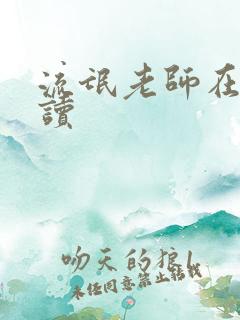 流氓老師在
讀
吻天的狼
未经同意禁止转载